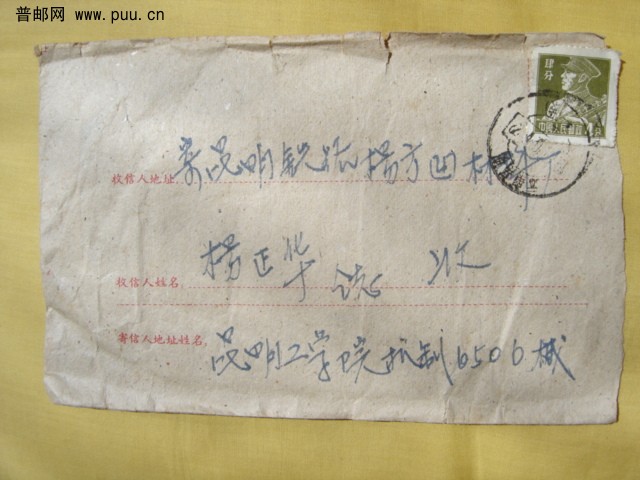 普邮网 www.puu.cn
肆分
中国人民邮政
收信人地址 寄昆明铁路杨方凹林场
收信人姓名 杨正华 收
寄信人地址姓名 昆明工学院机制6506械